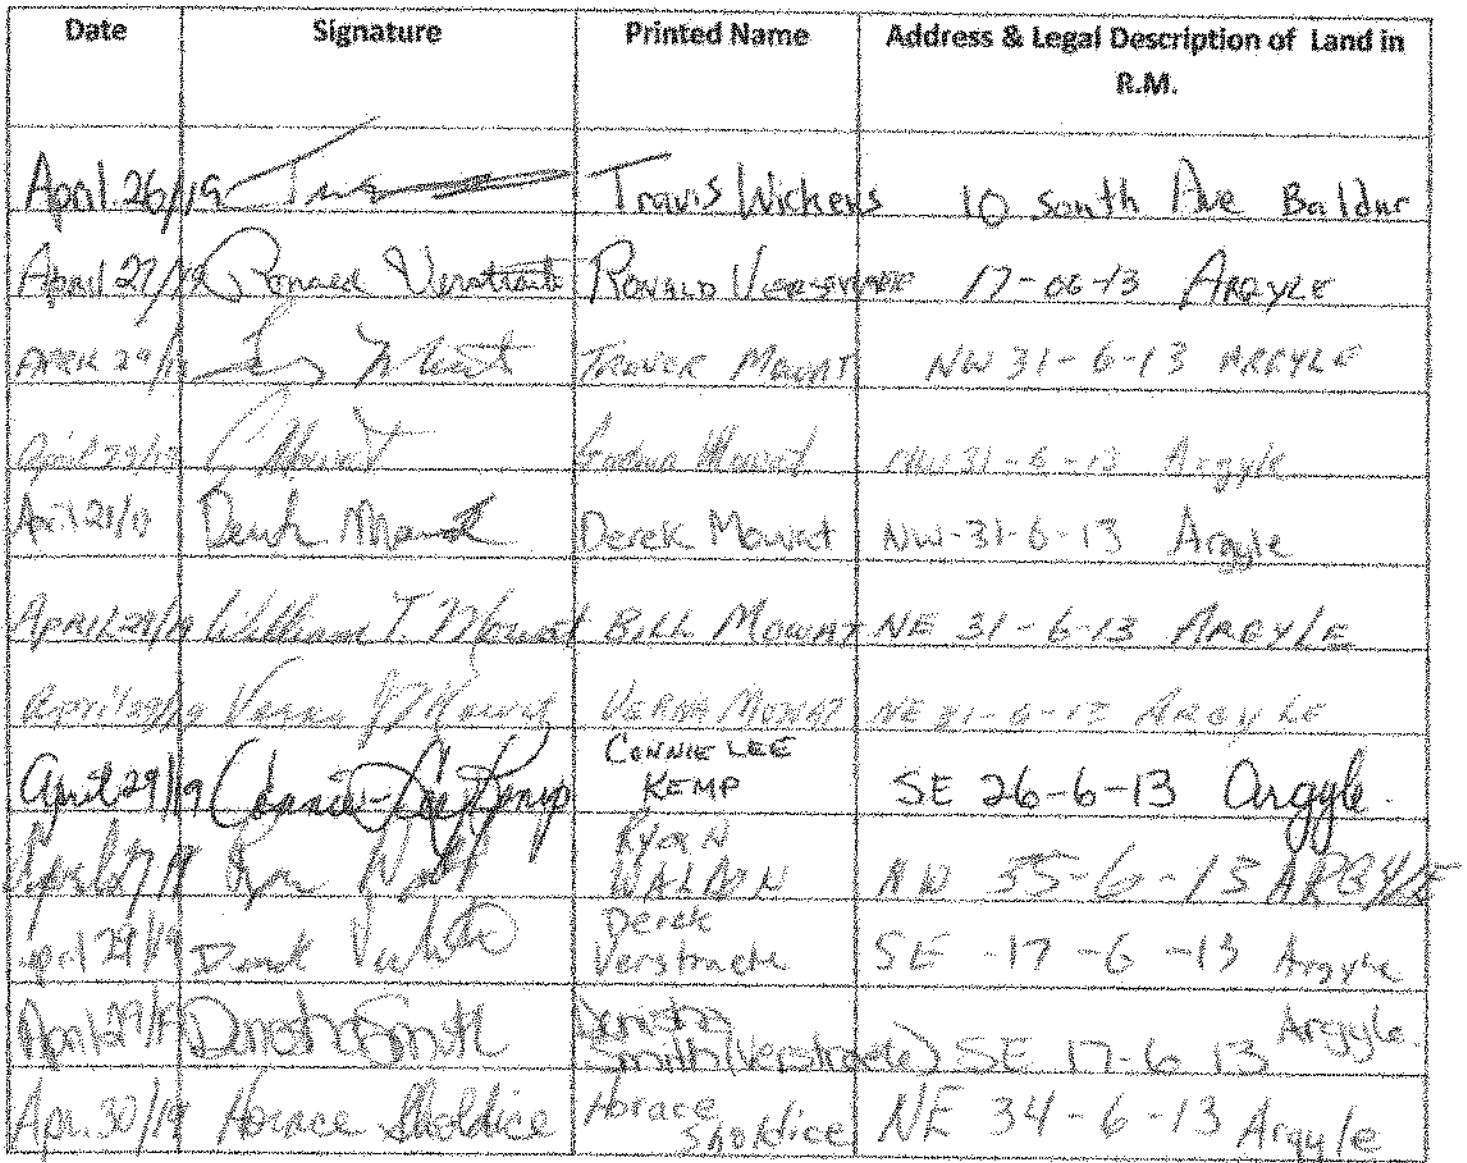 Date Signature Printed Name Address & Legal Description of Land in
R.M.
April 26/19 Travis Wickens 10 South Ave Baldur
April 27/19 Ronald Verstraete Ronald 17-06-13 ARGYLE
29/19 TREVER MOWAT NW 31-6-13 ARGYLE
April 29/19 C Mowat Mowat NW 31-6-13 Argyle
April 29/19 Derek Mowat Derek Mowat NW-31-6-13 Argyle
APRIL 29/19 William T. Mowat BILL MOWAT NE 31-6-13 ARGYLE
April 29/19 Verna Mowat VERNA MOWAT NE 31-6-13 ARGYLE
April 29/19 Connie-Lee Kemp CONNIE LEE
KEMP SE 26-6-13 Argyle.
Ryan Ryan
NW 35-6-13 ARGYLE
April 29/19 Derek Derek
Verstraete SE-17-6-13 Argyle
April 29/19 Smith
Smith (Verstraete) SE 17-6 13 Argyle
Apr. 30/19 Horace Sholdice Horace
Sholdice NE 34-6-13 Argyle